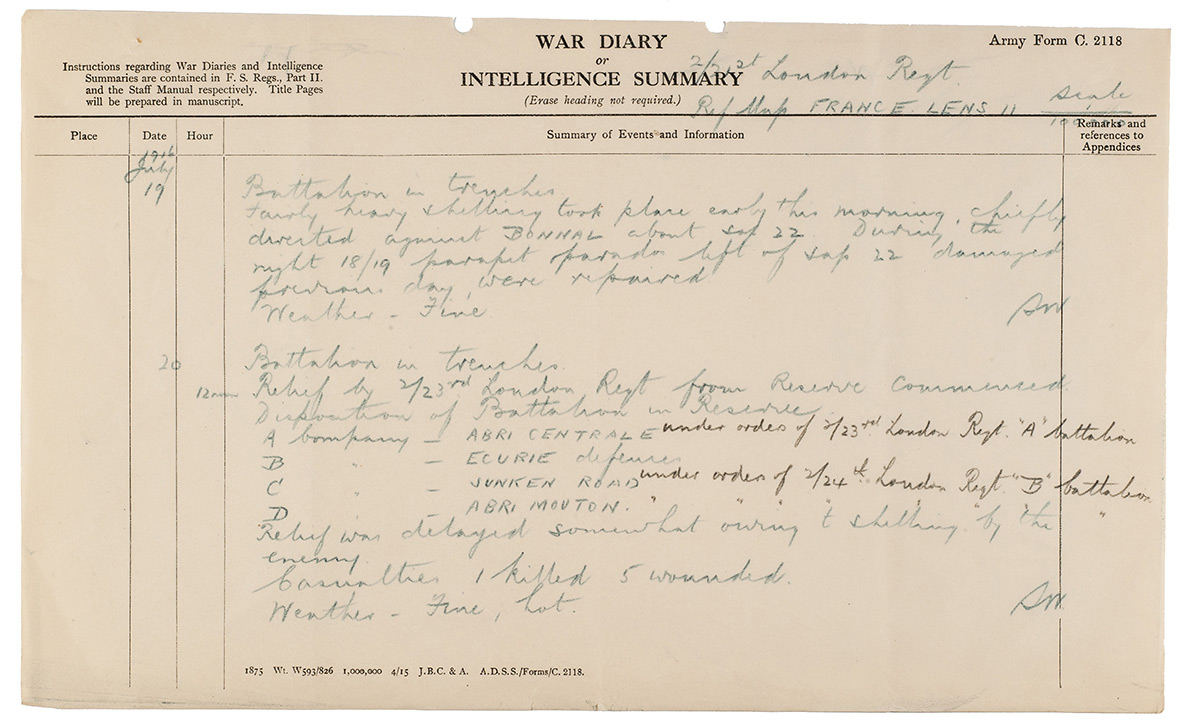 WAR DIARY
or
INTELLIGENCE SUMMARY
(Erase heading not required.)
Army Form C. 2118
Instructions regarding War Diaries and Intelligence
Summaries are contained in F. S. Regs., Part II.
and the Staff Manual respectively. Title Pages
will be prepared in manuscript.
2/21st London Regt.
Ref Map FRANCE. LENS 11 Scale
Place Date Hour Summary of Events and Information Remarks and
references to
Appendices
1916
July
19 Battalion in trenches.
Fairly heavy shelling took place early this morning, chiefly
directed against BONNAL about sap 22. During the
night 18/19 parapet & parados left of sap 22 damaged
previous day, were repaired.
Weather - Fine.
20 Battalion in trenches.
Relief by 2/23rd London Regt from Reserve commenced.
Disposition of Battalion in Reserve,
A Company - ABRI CENTRALE under orders of 2/23rd London Regt. "A" battalion
B " - ECURIE defences
C " - SUNKEN ROAD under orders of 2/24th London Regt. "B" battalion
D " - ABRI MOUTON. " " " " "
Relief was delayed somewhat owing to shelling by the
enemy.
Casualties 1 killed 5 wounded.
Weather - Fine, hot.
1875 Wt. W593/826 1,000,000 4/15 J.B.C. & A. A.D.S.S./Forms/C. 2118.